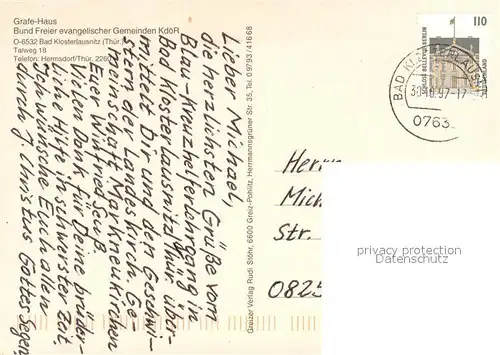 Grafe-Haus
Bund Freier evangelischer Gemeinden KdöR
O-6532 Bad Klosterlausnitz (Thür.)
Talweg 18
Telefon: Hermsdorf/Thür. 2260
Lieber Michael,
die herzlichsten Grüße vom
Blau-Kreuzhelferlehrgang in
Bad Klosterlausnitz/Thür. über-
mittelt Dir und den Geschwi-
stern der Landeskirch. Ge-
meinschaft Markneukirchen
Euer Winfried
Vielen Dank für Deine brüder-
lich. Hilfe in schwerster Zeit,
Ich wünsche Euch allen
durch J. Christus Gottes Segen
Greizer Verlag Rudi Stöhr, 6600 Greiz-Pohlitz, Herrmannsgrüner Str. 35, Tel. 0 97 93 / 4 16 68
110
SCHLOSS BELLEVUE BERLIN
DEUTSCHLAND
BAD KLOSTERLAUSN
30.10.97-17
0763
Herrn
Mich
Str.
0825
privacy protection
Datenschutz